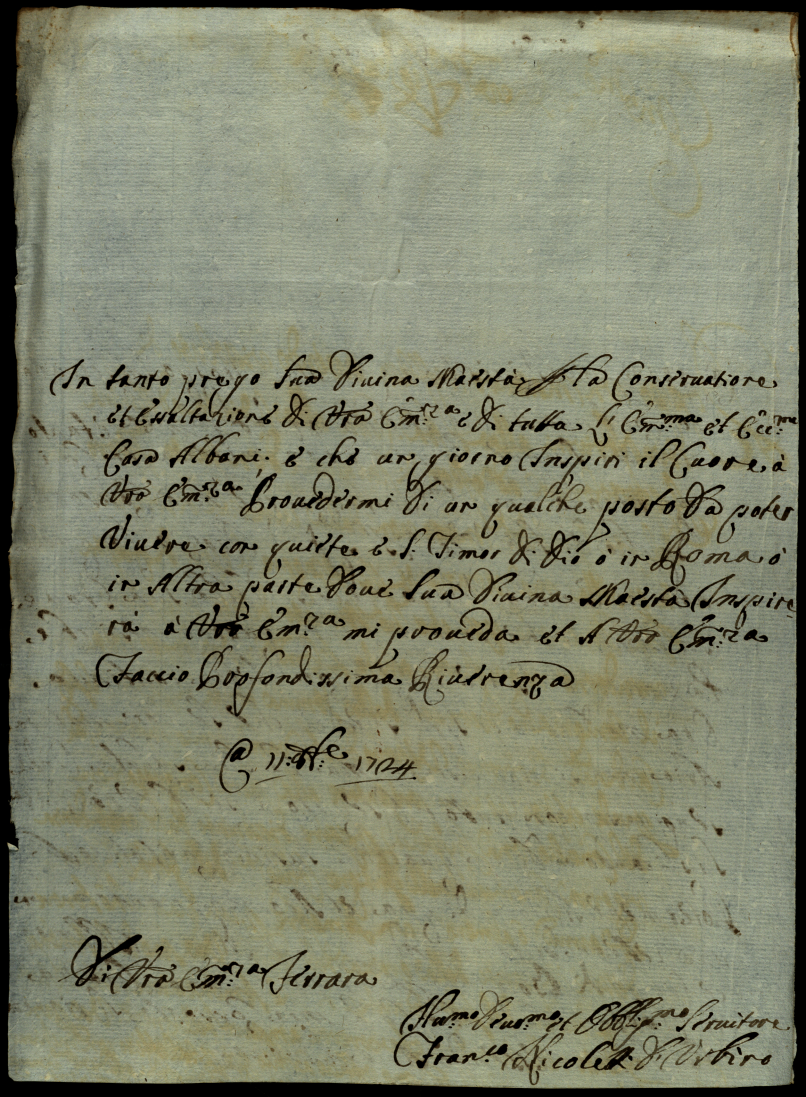 In tanto prego Sua Diuina Maestà p la Conseruatione
et Essaltazione di Vrã Em:za e di tutta l' Em:ma et Ecc:ma
Casa Albani, e che un giorno Inspiri il Cuore à
Vrã Em:za Prouedermi di un qualche posto da poter
Viuere con quiete e S. Timor di Dio ò in Roma ò
in Altra parte doue Sua Diuina Maestà Inspire
rà à Vrã Em:za mi proueda et A Vrã Em:za
Faccio Profondissima Riuerenza
1724
Di Vrã Em:za Ferrara
Hum:mo Deuo:mo et Obblig:mo Seruitore
Fran:co Nicoleti d'Urbino